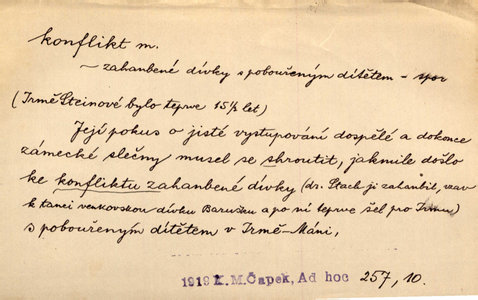 konflikt m.
~ zahanbené dívky s pobouřeným dítětem – spor
(Irmě Steinové bylo teprve 15½ let)
Její pokus o jisté vystupování dospělé a dokonce
zámecké slečny musel se shroutit, jakmile došlo
ke konfliktu zahanbené dívky (dr. Stach ji zahanbil, vzav
k tanci venkovskou dívku Barušku a po ní teprve šel pro Irmu)
s pobouřeným dítětem v Irmě-Máni,
1919 K.M.Čapek, Ad hoc 257, 10.